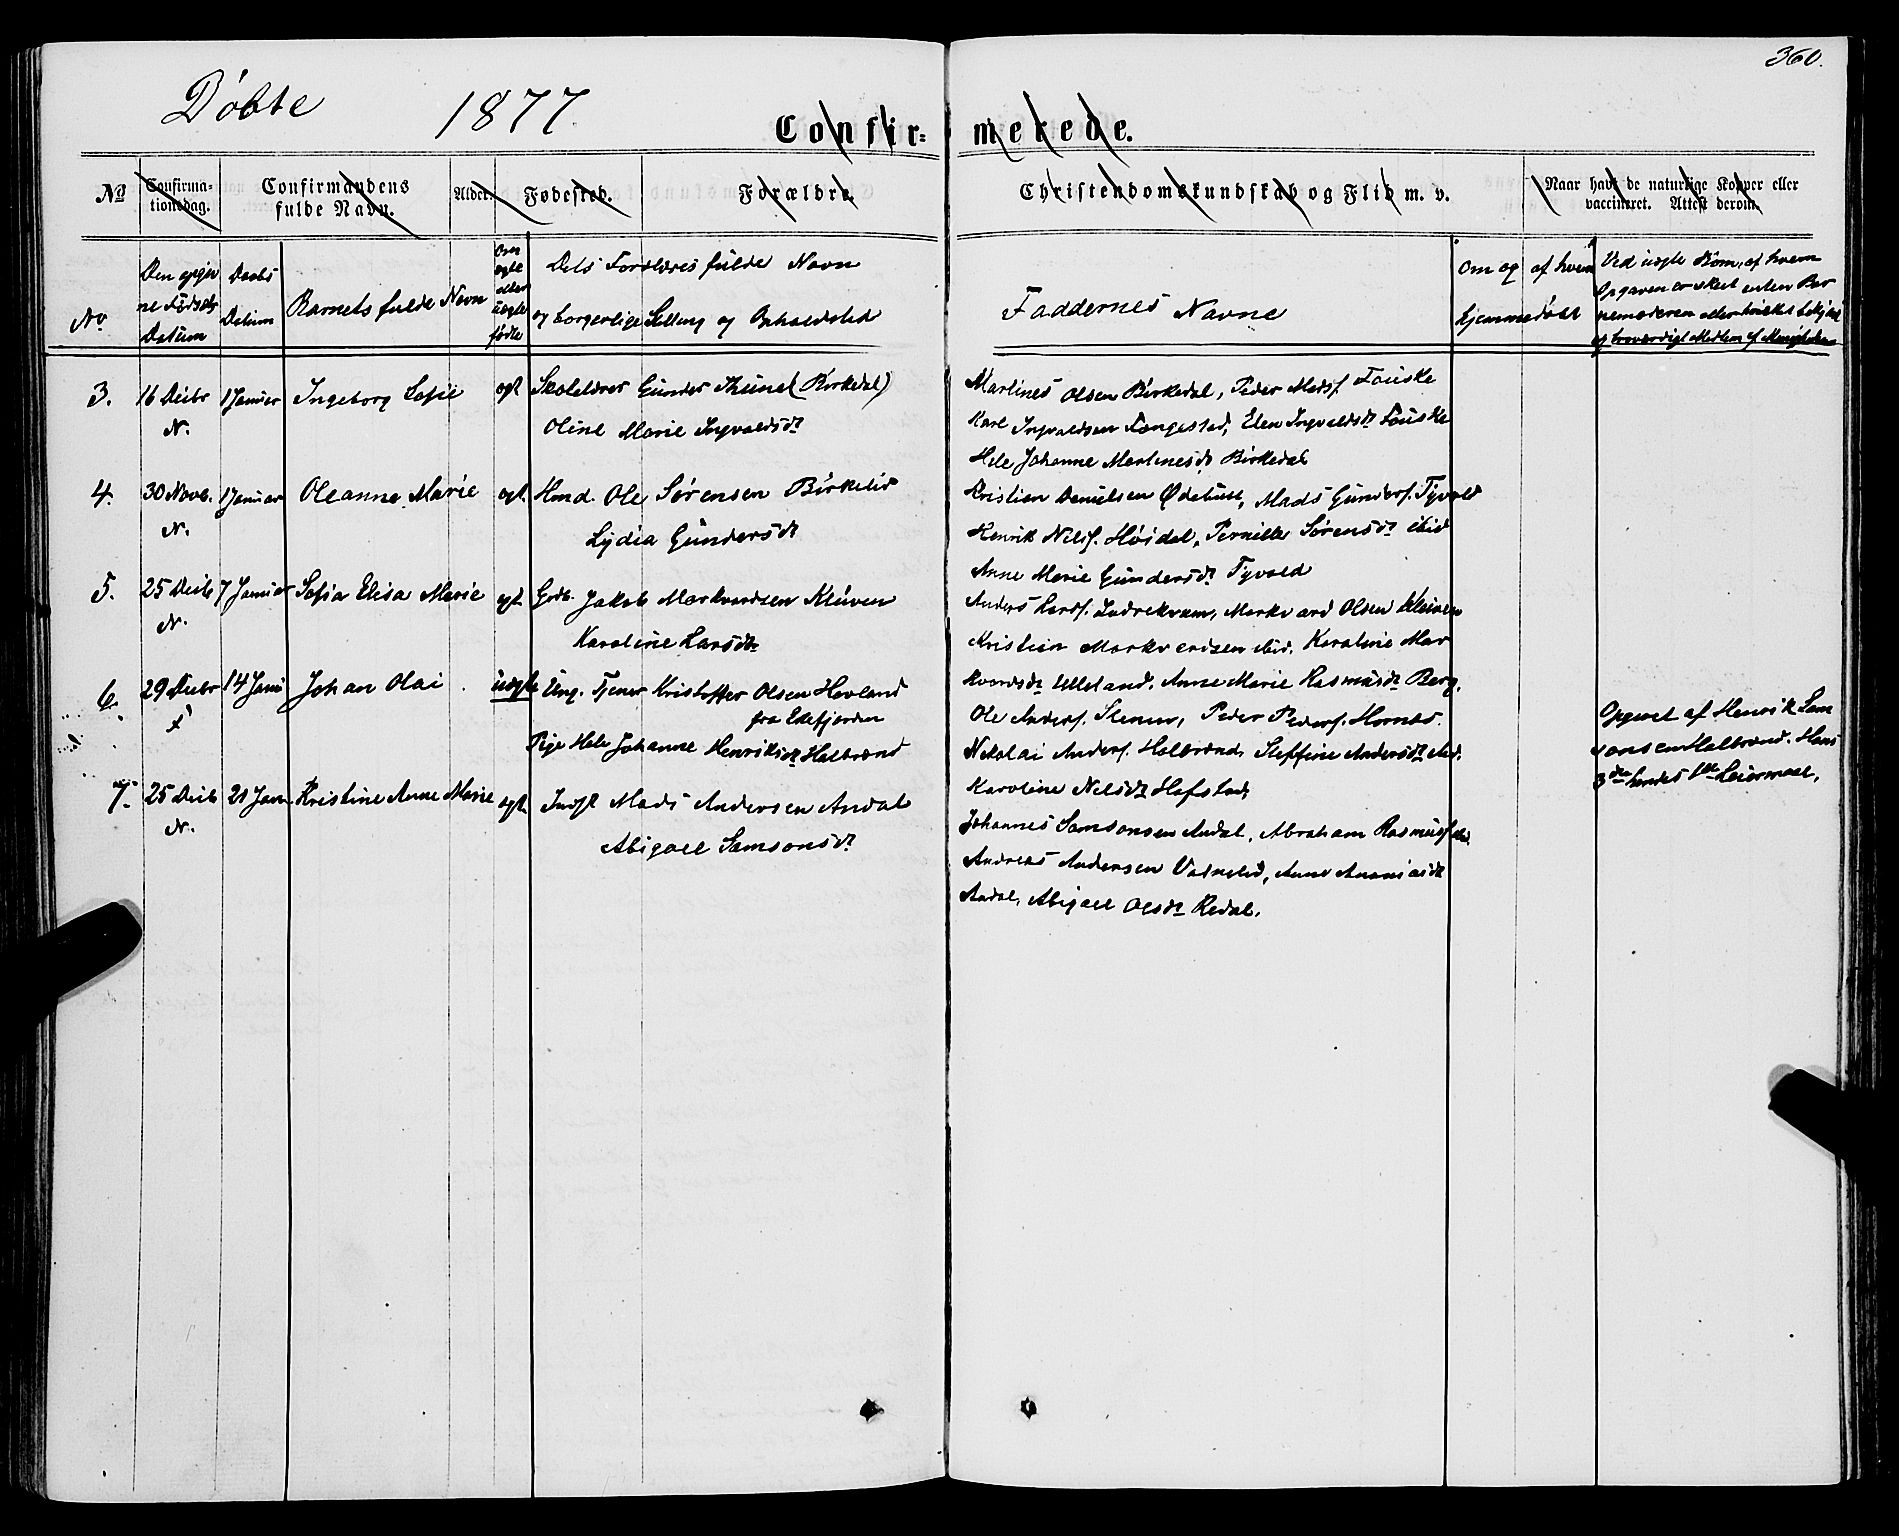 360.
Døbte 1877.
Confir- merede.
No Confirma- tionsdag. Confirmandens fulde Navn. Alder. Fødested. Forældre. Christendomskundskab og Flid m. v. Naar havt de naturlige Kopper eller vaccineret. Attest derom.
No Den opgiv ne Fødsels Datum Daabs Datum Barnets fulde Navn Om ægte eller uægte födte Dets Forældres fulde Navn og borgerlige Stilling og Opholdsted Faddernes Navne Om og af hvem hjemmedøbt Ved uægte Börn, af hvem Opgaven er skeet enten Bar nemoderen eller
3. 16 Decbr N. 1 Januar Ingeborg Sofie ægt Skolelærer Gunder (Birkedal)
Oline Marie Ingvaldsdr
Martines Olsen Birkedal, Peder Madsf. Fauske
Karl Ingvaldsen Fængestad, Elen Ingvaldsdr Fauske
Hele Johanne Martinesdr Birkedal
4. 30 Novb. N. 1 Januar Oleanna Marie ægt. Hmd. Ole Sørensen Birkelid
Lydia Gundersdr
Kristian Danielsen Ødehuse, Mads Gundersf. Tyvold
Henrik Nilsf. Høidal, Pernille Sørensdr ibid
Anne Marie Gundersdr Tyvold
5. 25 Decb N. 7 Januar Sofia Elisa Marie ægt. Grdb. Jakob Markvardsen Kluven
Karoline Larsdr
Anders Larsf. Indrekvam, Markvard Olsen Kluven
Kristian Markvardsen ibid. Karoline Mar
kvardsdr Ulleland. Anne Marie Rasmusdr Berg.
6. 29 Decbr 14 Janu Johan Olai uægte Ung. Tjener Kristoffer Olsen Hovland
fra Eikefjorden
Pige Hele Johanne Henriksdr Halbrænd
Ole Andersf. Slenem, Peder Pedersf. Hornæs.
Nikolai Andersf. Halbrænd, Steffine Andersdr ibid.
Karoline Nilsdr Hafstad
Opgivet af Henrik Sam
sonsen Halbrænd. Hans
3die hendes 1ste Leiermaal.
7. 25 Decb N. 21 Jan. Kristine Anne Marie ægt. Indst Mads Andersen Andal
Abigael Samsonsdr
Johannes Samsonsen Andal, Abraham Rasmusf ibid.
Andreas Andersen Vasnelid, Anne Ananiasdr
Andal, Abigael Olsdr Redal.